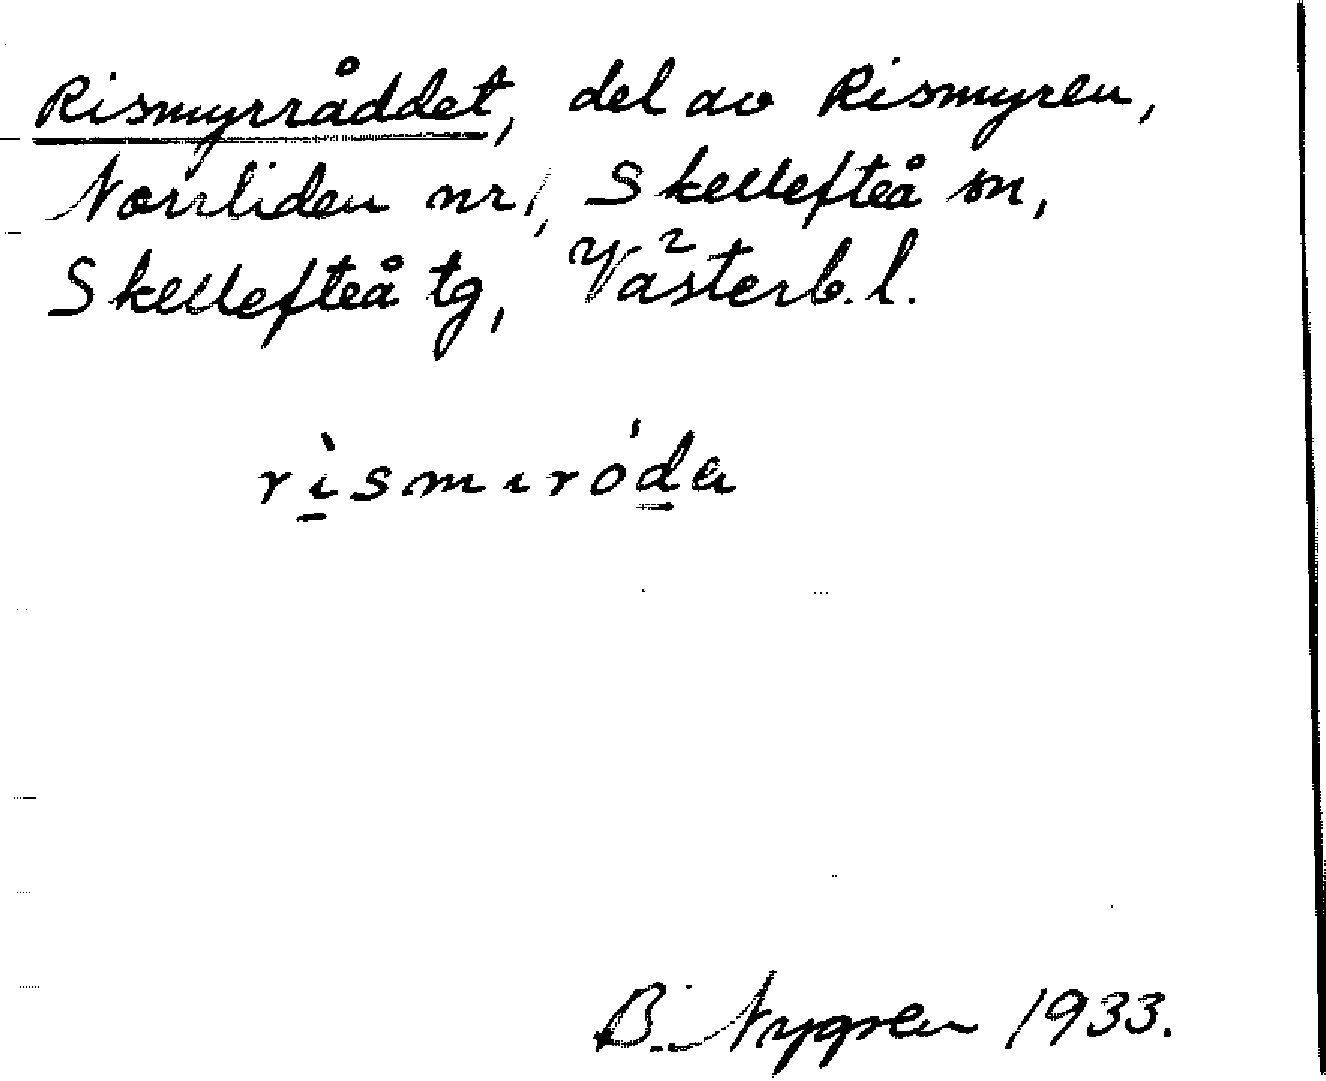 Rismyrråddet, del av Rismyren,
Norrliden nr 1, Skellefteå sn,
Skellefteå tg, Västerb. l.
rìsmıróda
B. Nygren 1933.